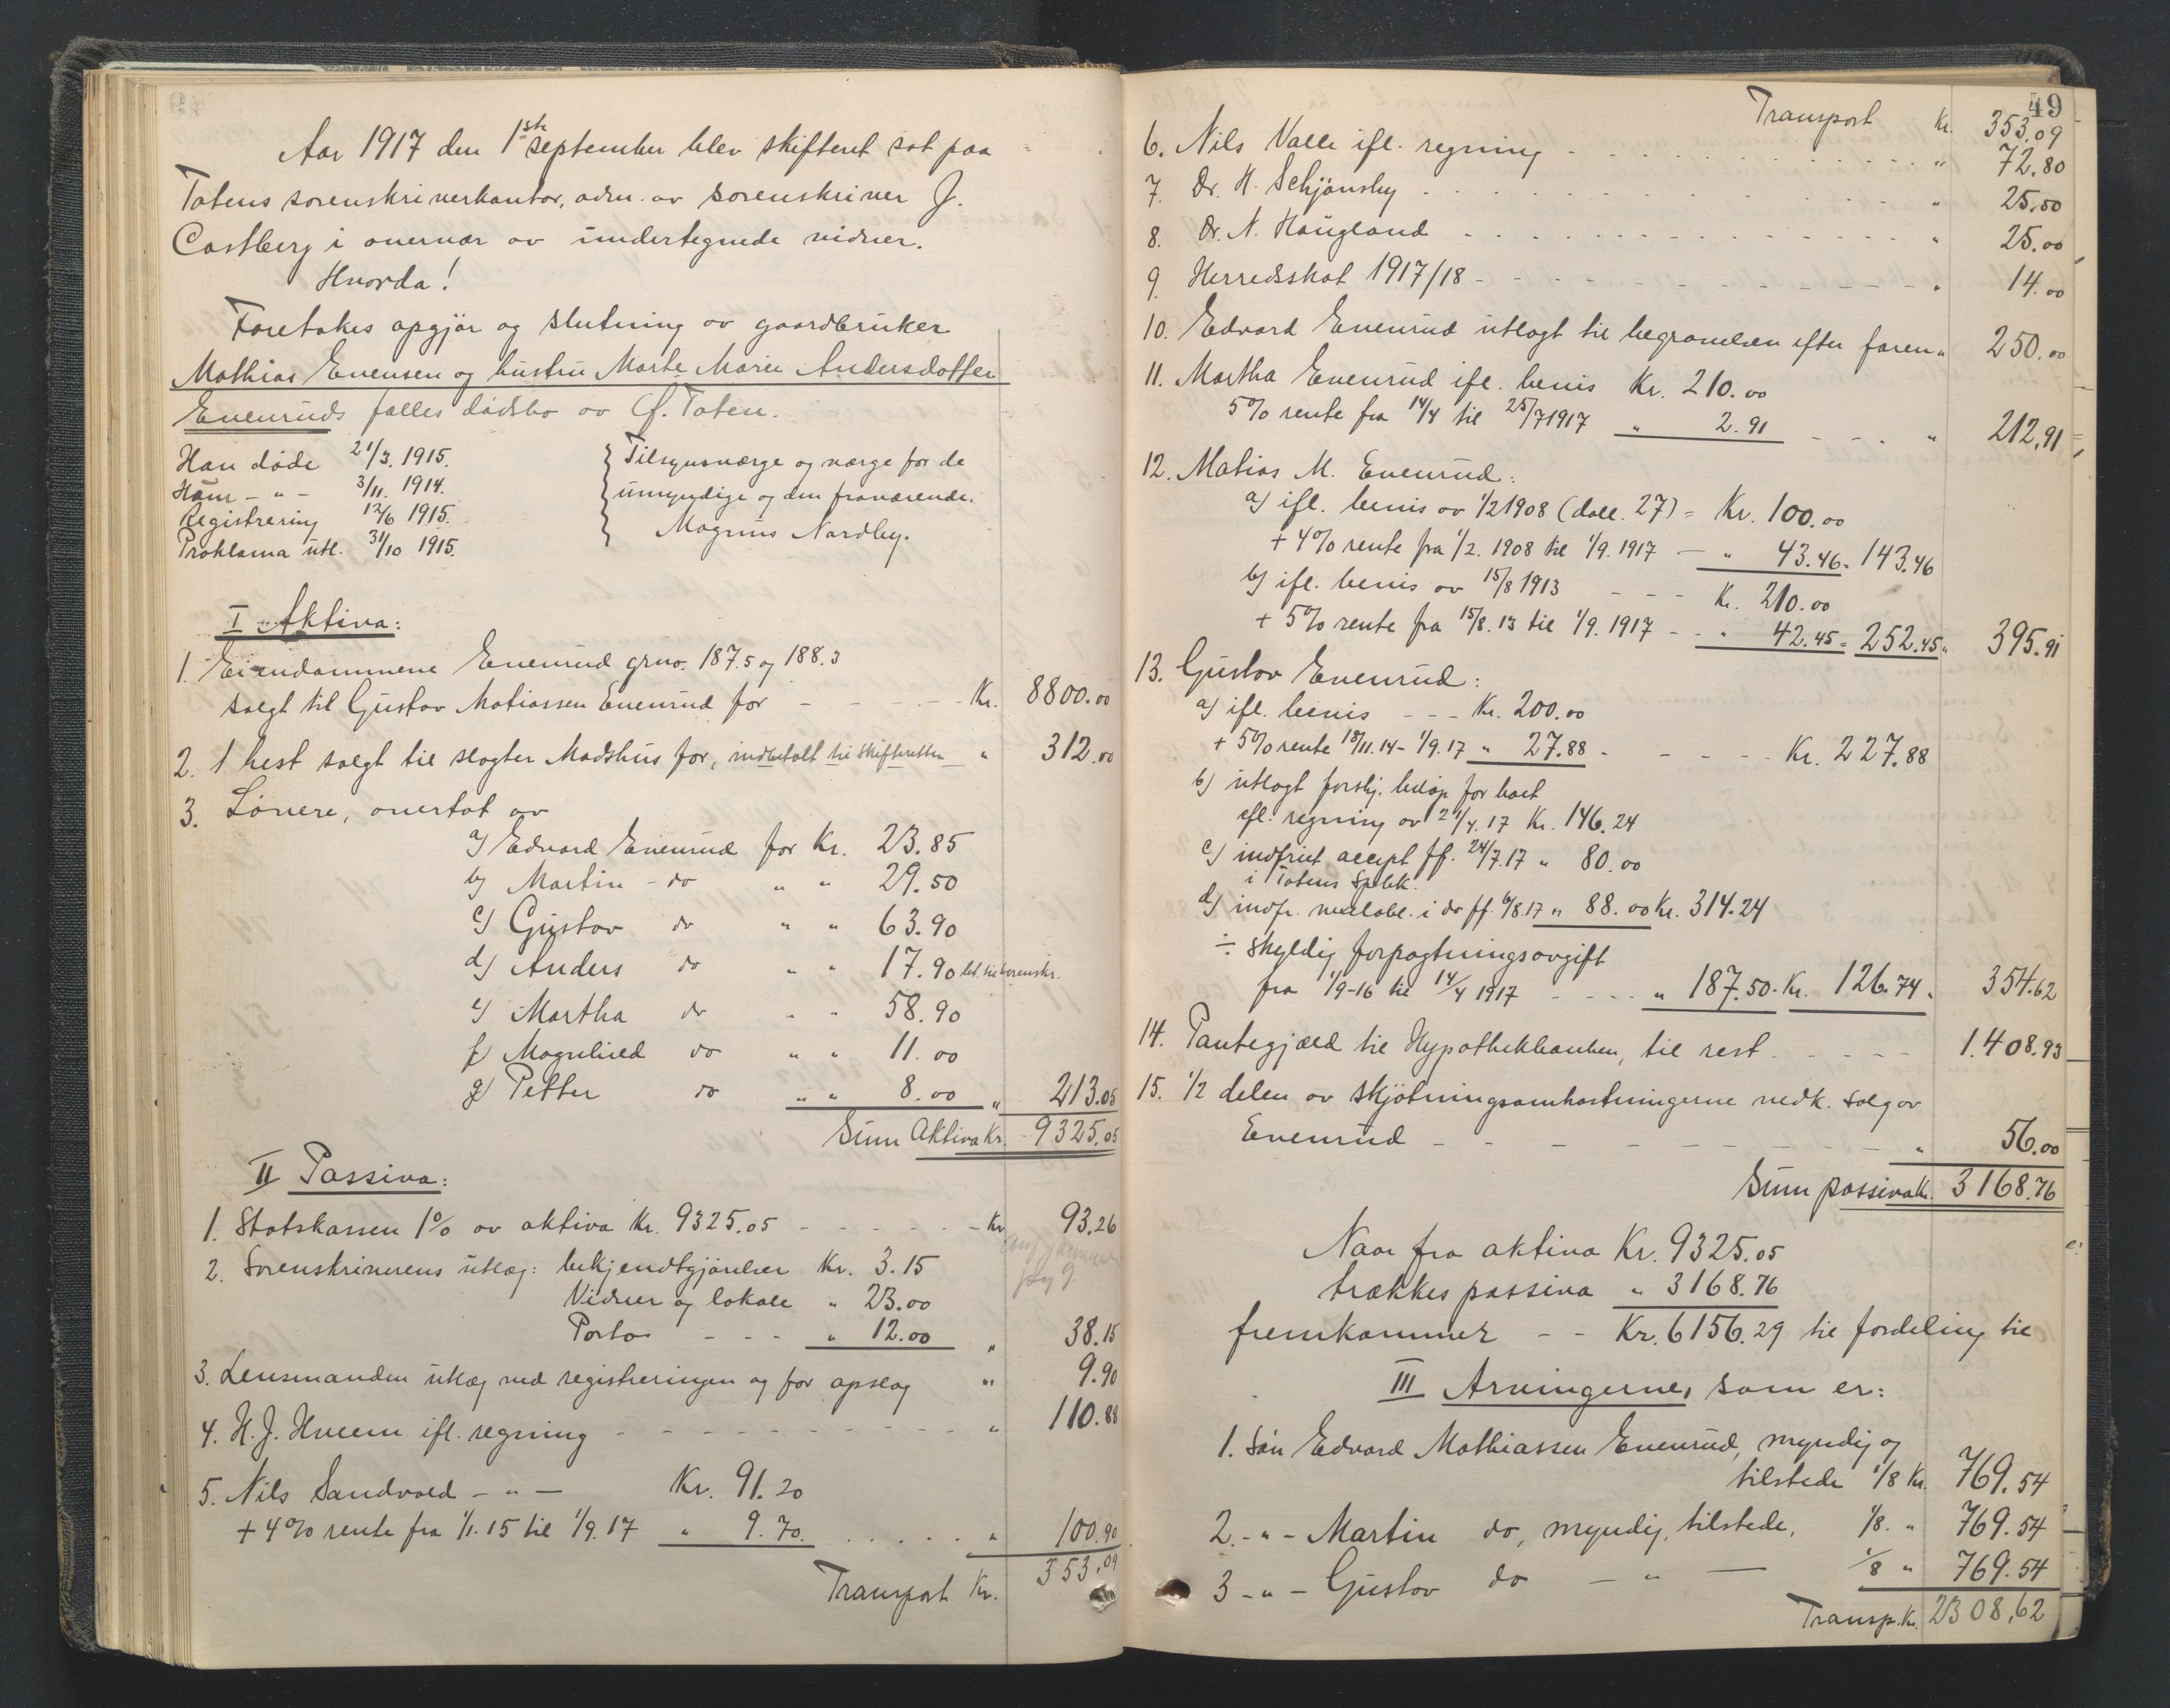 Aar 1917 den 1ste september blev skifteret sat paa
Totens sorenskriverkontor, adm. av sorenskriver J.
Castberg i overvær av undertegnede vidner.
Hvorda!
Foretokes opgjør og slutning av gaardbruker
Mathias Evensen og hustru Marte Marie Andersdotter
Evenruds fælles dødsbo av Ø. Toten.
Han døde 21/3. 1915.
Hun - " - 3/11. 1914.
Registrering 12/6 1915.
Proklama utl. 31/10 1915.
Tilsynsværge og værge for de
umyndige og den fraværende:
Magnus Nordby.
I Aktiva:
1. Eiendommene Evenrud grno. 187.5 og 188.3
solgt til Gustav Matiassen Evenrud for - - - - - Kr. 8800.00
2. 1 hest solgt til slagter Madshus for, indbetalt til skifteretten " 312.00
3. Løsøre, overtat av
a) Edvard Evenrud for Kr. 23.85
b) Martin - do " " 29.50
c) Gustav do " " 63.90
d) Anders do " " 17.90 bet. til sorenskr.
e) Martha do " " 58.90
f) Magnhild do " " 11.00
g) Petter do " " 8.00 " 213.05
Sum Aktiva Kr. 9325.05
II Passiva:
1. Statskassen 1% av aktiva Kr. 9325.05 - - - - - - Kr. 93.26
2. Sorenskriverens utlæg: bekjendtgjørelser Kr. 3.15
Vidner og lokale " 23.00
Porto - - - " 12.00 " 38.15
3. Lensmanden utlæg ved registreringen og for opslag " 9.90
4. H. J. Hveem ifl. regning - - - - - - - - - " 110.88
5. Nils Sandvold - " - Kr. 91.20
+ 4% rente fra 1/1.15 til 1/9.17 " 9.70. . . . . . " 100.90
Transport Kr. 353.09
49
Transport Kr. 353.09
6. Nils Valle ifl. regning - . . . . . . . . . . . . " 72.80
7. Dr. H. Schjønsby . . . . . . . . . . . " 25.50
8. Dr. N. Haugland . . . . . . . . . . . . " 25.00
9. Herredsskat 1917/18 - - - - - - - - - - - " 14.00
10. Edvard Evenrud utlagt til begravelsen efter faren " 250.00
11. Martha Evenrud ifl. bevis Kr. 210.00
5% rente fra 14/4 til 25/7 1917 " 2.91 - - - " 212.91
12. Matias M. Evenrud:
a) ifl. bevis av 1/2 1908 (doll. 27) = Kr. 100.00
+ 4% rente fra 1/2. 1908 til 1/9. 1917 - " 43.46 = 143.46
b) ifl. bevis av 15/8 1913 - - - Kr. 210.00
+ 5% rente fra 15/8.13 til 1/9. 1917 - - " 42.45 = 252.45 " 395.91
13. Gustav Evenrud:
a) ifl. bevis - - - Kr. 200.00
+ 5% rente 18/11.14 - 1/9.17 " 27.88 - - - - - Kr. 227.88
b) utlagt forskj. beløp for boet
ifl. regning av 21/4.17 Kr. 146.24
c) indfriet accept ff. 24/7.17 " 80.00
i Totens Spbk.
d) indfr. vexelobl. i do ff. 6/8.17 " 88.00 Kr. 314.24
÷ skyldig forpagtningsavgift
fra 1/9-16 til 14/4 1917 - - - - " 187.50. Kr. 126.74 " 354.62
14. Pantegjæld til Hypothekbanken, til rest . - - - - 1.408.93
15. 1/2 delen av skjøtningsomkostningerne vedk. salg av
Evenrud - - - - - - - - - - " 56.00
Sum passiva Kr. 3168.76
Naar fra aktiva Kr. 9325.05
trækkes passiva " 3168.76
fremkommer - - Kr. 6156.29 til fordeling til
III Arvingerne, som er:
1. Søn Edvard Mathiassen Evenrud, myndig og
tilstede 1/8 Kr. 769.54
2. - " - Martin do, myndig, tilstede, 1/8. " 769.54
3 - " - Gustav do - " - 1/8 " 769.54
Transp. Kr. 2308,62